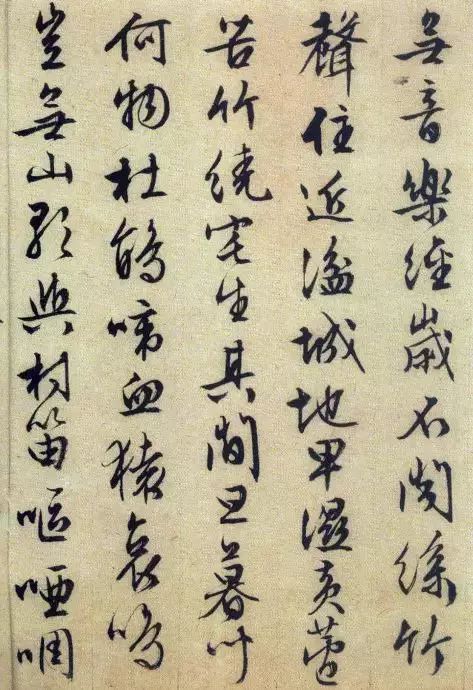 無音樂經歲不聞絲竹
聲住近湓城地卑濕黄蘆
苦竹繞宅生其間旦暮聞
何物杜鵑啼血猿哀鳴
豈無山歌與村笛嘔啞啁